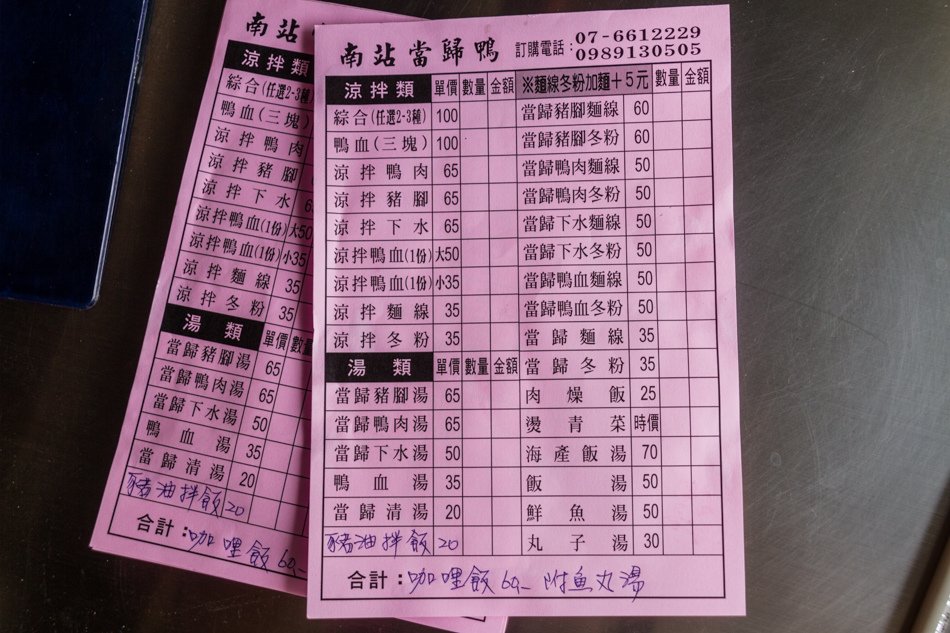 南站當歸鴨 訂購電話：07-6612229
0989130505
涼拌類 單價 數量 金額 ※麵線冬粉加麵＋5元 數量 金額
綜合(任選2-3種) 100 當歸豬腳麵線 60
鴨血(三塊) 100 當歸豬腳冬粉 60
涼拌鴨肉 65 當歸鴨肉麵線 50
涼拌豬腳 65 當歸鴨肉冬粉 50
涼拌下水 65 當歸下水麵線 50
涼拌鴨血(1份) 大50 當歸下水冬粉 50
涼拌鴨血(1份) 小35 當歸鴨血麵線 50
涼拌麵線 35 當歸鴨血冬粉 50
涼拌冬粉 35 當歸麵線 35
湯類 單價 數量 金額 當歸冬粉 35
當歸豬腳湯 65 肉燥飯 25
當歸鴨肉湯 65 燙青菜 時價
當歸下水湯 50 海產飯湯 70
鴨血湯 35 飯湯 50
當歸清湯 20 鮮魚湯 50
豬油拌飯 20 丸子湯 30
合計：咖哩飯60- 附魚丸湯
南站
涼拌類
綜合(任選2-3種)
鴨血(三塊)
涼拌鴨肉
涼拌豬腳
涼拌下水
涼拌鴨血(1份) 大50
涼拌鴨血(1份) 小35
涼拌麵線 35
涼拌冬粉 35
湯類 單價 數量
當歸豬腳湯 65
當歸鴨肉湯 65
當歸下水湯 50
鴨血湯 35
當歸清湯 20
豬油拌飯 20
合計：咖哩飯60-